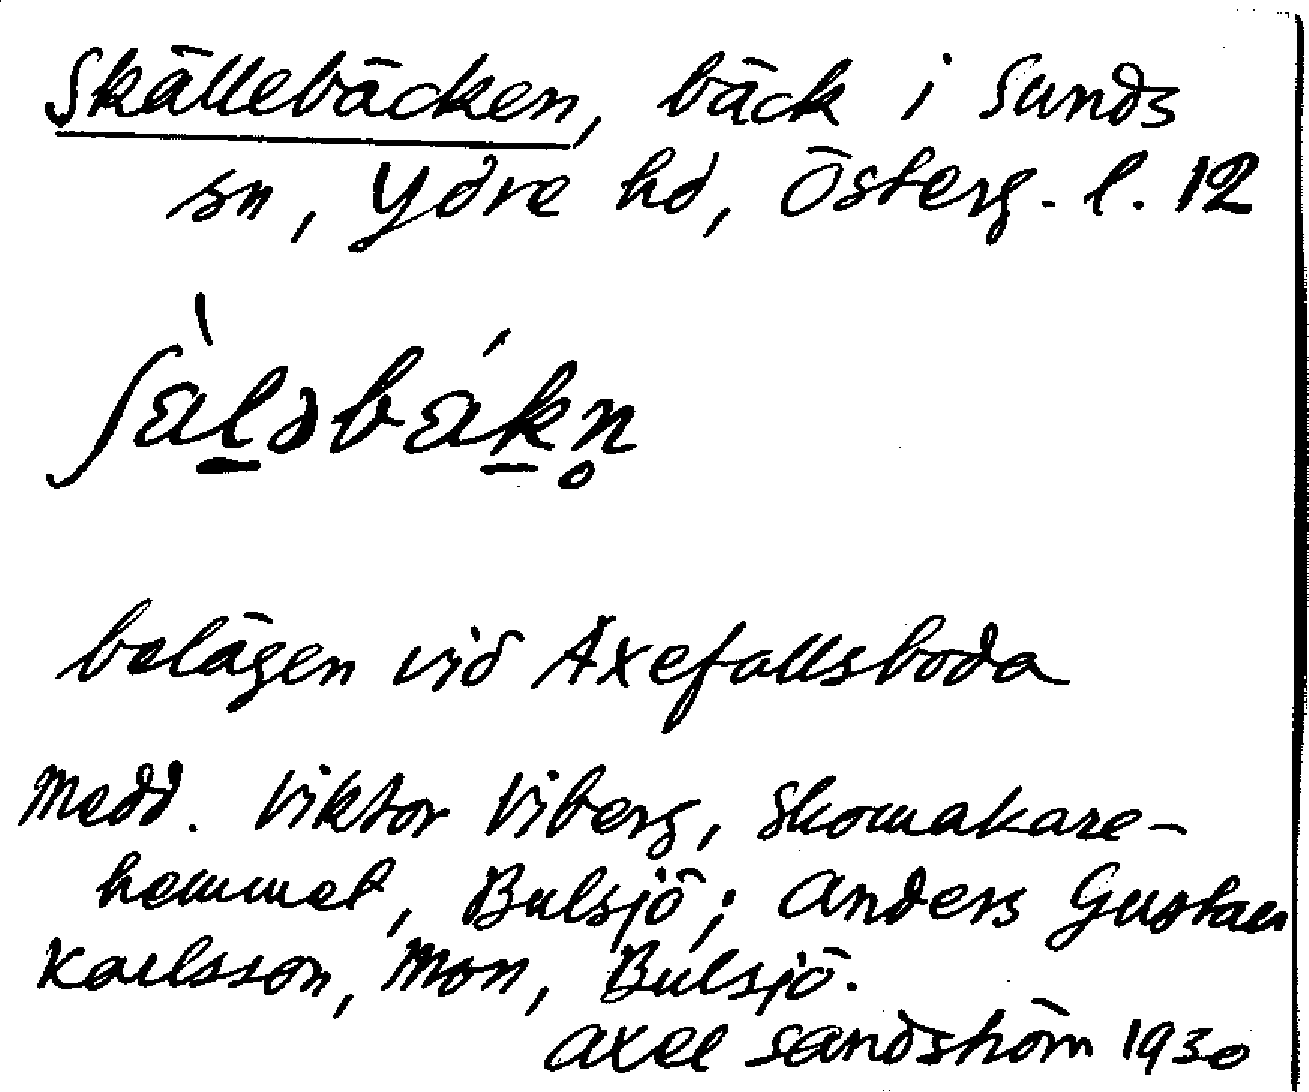 Skällebäcken, bäck i Sunds
sn, Ydre hd, Österg. l. 12
ʃàl̠əbák̠n̥
belägen vid Axefallsboda
Medd. Viktor Viberg, Skomakare-
hemmet, Bulsjö; Anders Gustav
Karlsson, Mon, Bulsjö.
Axel Sandström 1930